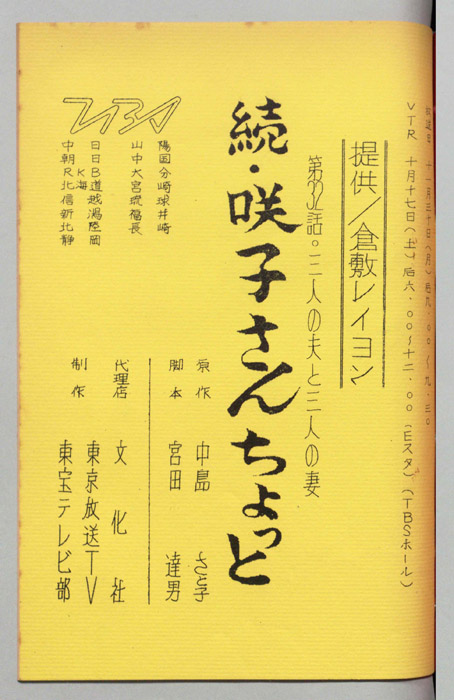 放送日 十一月三十日(月)后九.〇〇〜九.三〇
VTR 十月十七日(土)后六.〇〇〜十二.〇〇(Eスタ)(TBSホール)
提供/倉敷レイヨン
第32話。三人の夫と三人の妻
続・咲子さんちょっと
原作 中島 さと子
脚本 宮田 達男
代理店 文化社
東京放送TV
制作 東宝テレビ部
TBS
陽国分崎球井崎
山中大宮琉福長
日日B道越潟陸岡
K海
中朝R北信新北静